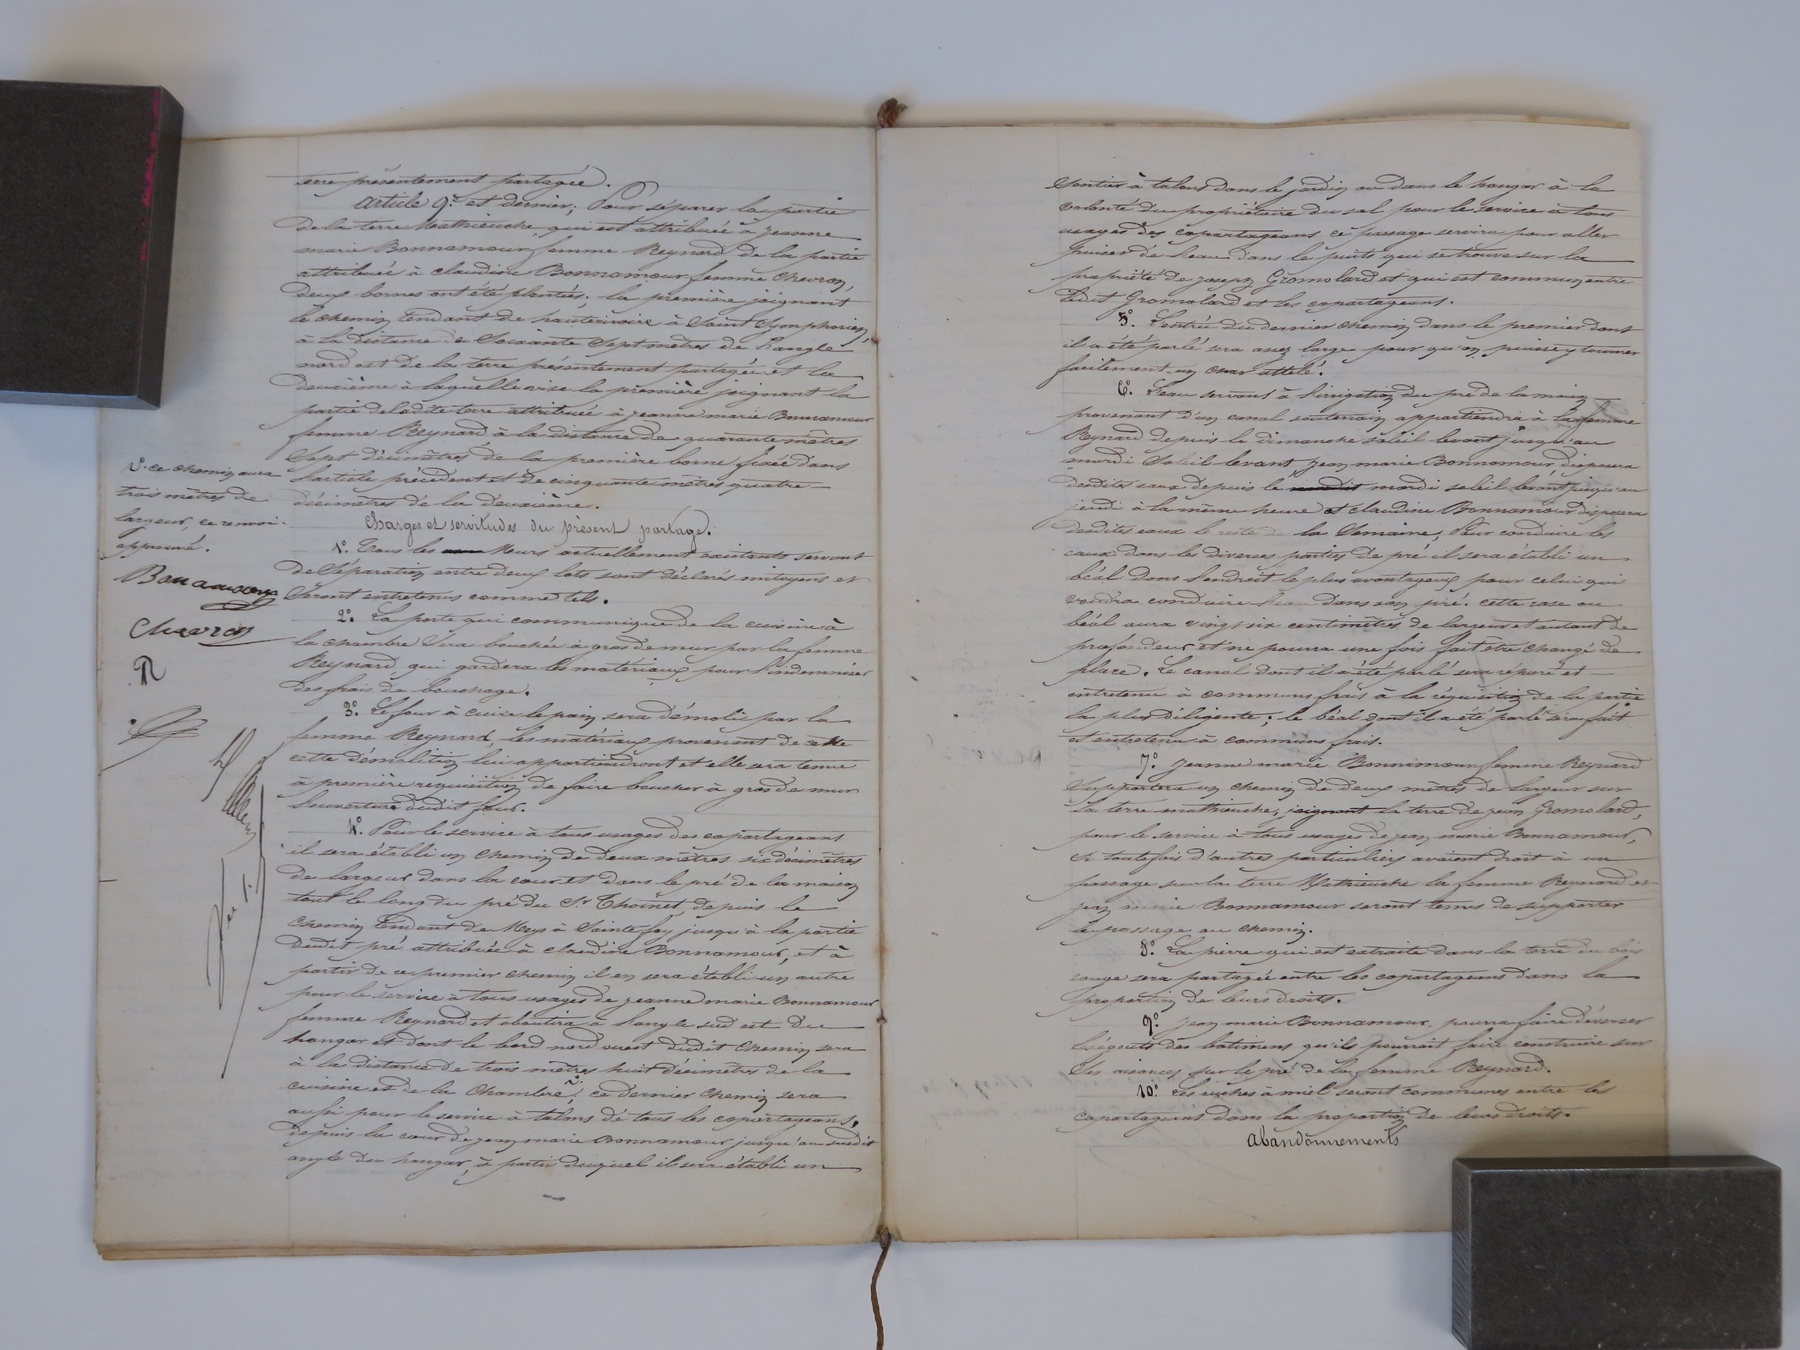 terre présentement partagée.
Article 9e et dernier; Pour séparer la partie
de la terre Mathieuche, qui est attribuée à jeanne
marie Bonnamour femme Reynard de la partie
attribuée à claudine Bonnamour femme Chevron,
deux bornes ont été plantées. la première joignant
le chemin tendant de hauterivoire à Saint Symphorien,
à la distance de Soixante Sept mètres de l'angle
nord est de la terre présentement partagée et la
deuxième à laquelle vise la première joignant la
partie de ladite terre attribuée à jeanne marie Bonnamour
femme Reynard à la distance de quarante mètres
Sept décimètres de la première borne fixée dans
l'article précédent et de cinquante mètres quatre
décimètres de la deuxième.
Charges et servitudes du présent partage.
1o. Tous les murs actuellement existants servant
de Séparation entre deux lots sont déclarés mitoyens et
seront entretenus comme tels.
2o. La porte qui communique de la cuisine à
la chambre Sera bouchée à gros de mur par la femme
Reynard qui gardera les matériaux pour l'indemniser
des frais de bouchage.
3o. Le four à cuire le pain sera démoli par la
femme Reynard, les matériaux provenant de cette
cette démolition lui appartiendront et elle sera tenue
à première réquisition de faire boucher à gros de mur
l'ouverture dudit four.
4o. Pour le service à tous usages des copartageans
il sera établi un chemin de deux mètres six décimètres
de largeur dans la cour et dans le pré de la maison
tout le long du pré du Sr Thoinet, depuis le
chemin tendant de Meys à Sainte foy jusqu'à la partie
dudit pré attribuée à claudine Bonnamour, et à
partir de ce premier chemin il en sera établi un autre
pour le service à tous usages de jeanne marie Bonnamour
femme Reynard et aboutira à l'angle sud est du
hangar et dont le bord nord ouest dudit chemin sera
à la distance de trois mètres huit décimètres de la
cuisine et de la chambre, ce dernier chemin sera
aussi pour le service à talons de tous les copartageans,
depuis la cour de jean marie Bonnamour jusqu'au susdit
angle du hangar, à partir duquel il sera établi un
ce chemin aura
trois mètres de
largeur, ce renvoi
approuvé.
Bonnamour
Chevron
R
sentier à talons dans le jardin ou dans le hangar à la
volonté du propriétaire du sol pour le service à tous
usages des copartageans ce passage servira pour aller
puiser de l'eau dans le puits qui se trouve sur la
propriété de joseph Gromolard et qui est commun entre
ledit Gromolard et les copartageans.
5o. L'entrée du dernier chemin dans le premier dont
il a été parlé sera assez large pour qu'on puisse y tourner
facilement un char attelé.
6o. L'eau servant à l'irrigation du pré de la maison
provenant d'un canal souterrain appartiendra à la femme
Reynard depuis le dimanche soleil levant jusqu'au
mardi Soleil levant, jean marie Bonnamour disposera
desdites eaux depuis le mardi soleil levant jusqu'au
jeudi à la même heure et claudine Bonnamour disposera
desdites eaux le reste de la Semaine, Pour conduire les
eaux dans les diverses parties de pré il sera établi un
béal dans l'endroit le plus avantageux pour celui qui
voudra conduire l'eau dans son pré. cette rase ou
béal aura vingt six centimètres de largeur et autant de
profondeur et ne pourra une fois fait être changé de
place. Le canal dont il a été parlé sera réparé et
entretenu à communs frais à la réquisition de la partie
la plus diligente; le béal dont il a été parlé sera fait
et entretenu à communs frais.
7o. jeanne marie Bonnamour femme Reynard
Supportera un chemin de deux mètres de largeur sur
la terre mathieuche, joignant la terre de jean Gromolard,
pour le service à tous usages de jean marie Bonnamour,
si toutefois d'autres particuliers avaient droit à un
passage sur la terre Mathieuche la femme Reynard et
jean marie Bonnamour seront tenus de supporter
le passage ou chemin.
8o. La pierre qui est extraite dans la terre du bois
rouge sera partagée entre les copartageans dans la
proportion de leurs droits.
9o. jean marie Bonnamour pourra faire déverser
l'égout des batimens qu'ils pourrait faire construire sur
ses aisances sur le pré de la femme Reynard.
10o. Les ruches à miel seront communes entre les
copartageans dans la proportion de leurs droits.
Abandonnements